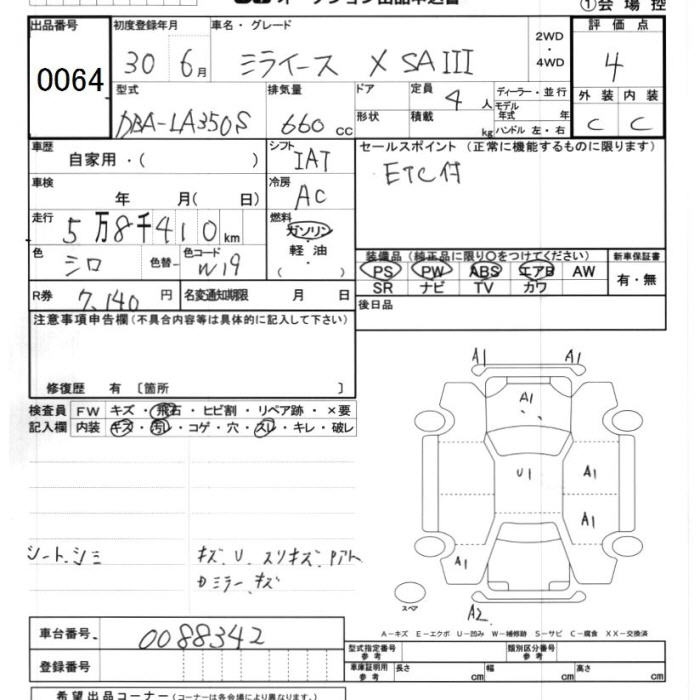 ①会場控
出品番号 初度登録年月 車名・グレード 2WD・4WD 評価点
0064 30 6月 ミライース X SAIII 4
型式 排気量 ドア 定員 4人 ディーラー・並行
モデル年式 年
外装 内装
DBA-LA350S 660cc 形状 積載 kg ハンドル 左・右 C C
車歴 自家用・( ) シフト IAT セールスポイント (正常に機能するものに限ります)
車検 年 月( 日) 冷房 AC ETC付
走行 5万8千410km 燃料 ガソリン・軽油 ( )
色 シロ 色替 色コード W19
装備品 (純正品に限り○をつけてください) 新車保証書
PS PW ABS エアB AW 有・無
SR ナビ TV カワ
R券 7,140円 名変通知期限 月 日 後日品
注意事項申告欄 (不具合内容等は具体的に記入して下さい)
修復歴 有 〔箇所 〕
検査員記入欄 FW キズ・飛石・ヒビ割・リペア跡・×要
内装 キズ・汚レ・コゲ・穴・スレ・キレ・破レ
A1 A1
A1
U1 A1
A1
A1
スペア A2
シート、シミ キズ、U、スリキズ、
ドミラーキズ
A-キズ E-エクボ U-凹み W-補修跡 S-サビ C-腐食 XX-交換済
車台番号 0088342
型式指定番号 参考 類別区分番号 参考
登録番号
車庫証明用 参考 長さ cm 幅 cm 高さ cm
希望出品コーナー (コーナーは各会場により異なります。)